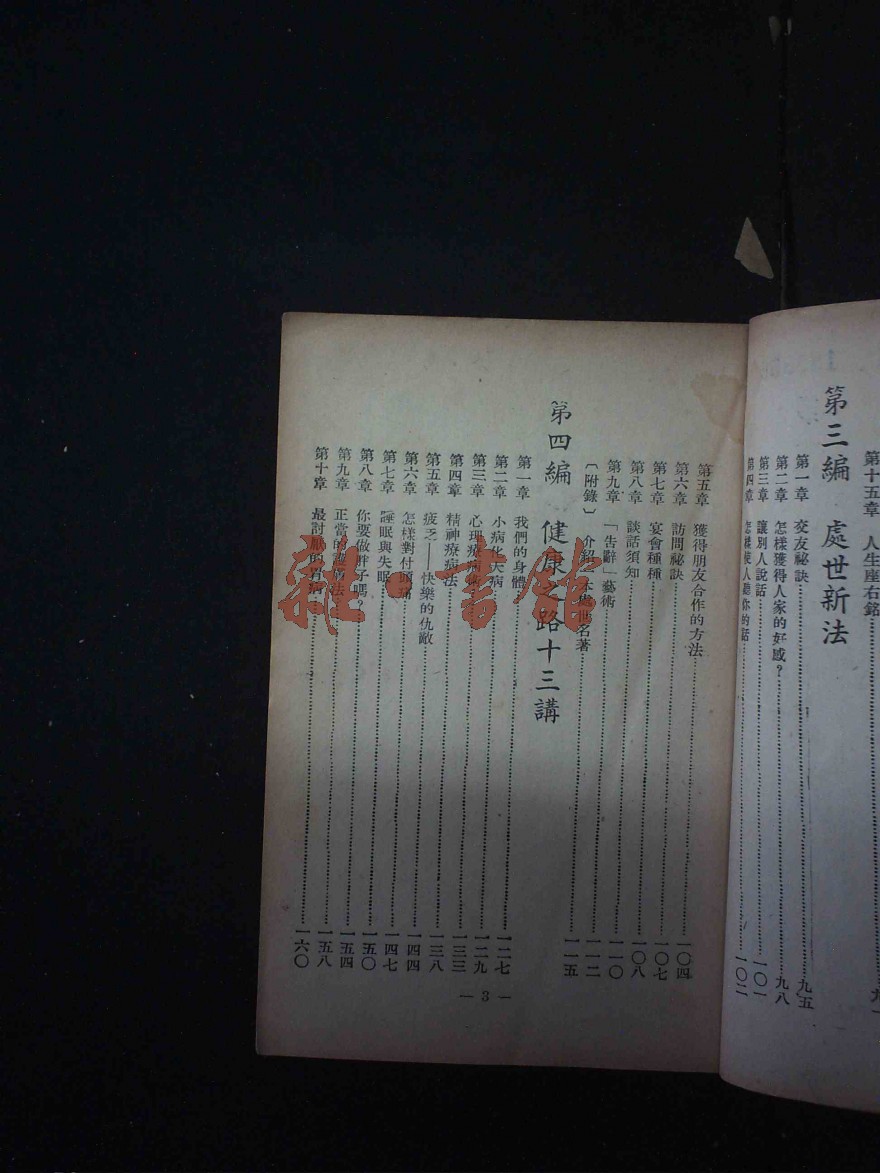 第十五章 人生座右銘
第三編 處世新法
第一章 交友秘訣 九五
第二章 怎樣獲得人家的好感？ 九八
第三章 讓別人說話 一〇一
第四章 怎樣使人聽你的話 一〇二
第五章 獲得朋友合作的方法 一〇四
第六章 訪問祕訣 一〇七
第七章 宴會種種 一〇八
第八章 談話須知 一一〇
第九章 「告辭」藝術 一一二
〔附錄〕 介紹一本處世名著 一一五
第四編 健康之路十三講
第一章 我們的身體 一二七
第二章 小病化大病 一二九
第三章 心理療病術 一三三
第四章 精神療病法 一三八
第五章 疲乏——快樂的仇敵 一四四
第六章 怎樣對付頭痛 一四七
第七章 睡眠與失眠 一五〇
第八章 你要做胖子嗎？ 一五四
第九章 正當的養病法 一五八
第十章 最討厭的胃病 一六〇
— 3 —
雜·書館